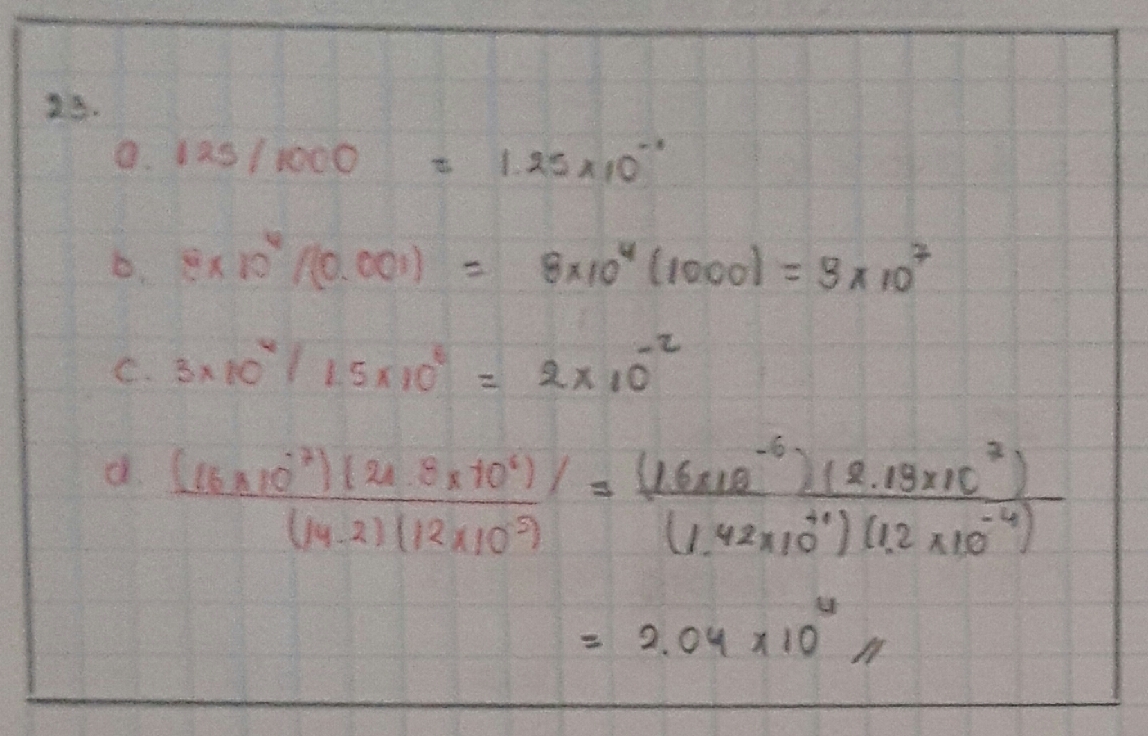 23.
a. 125/1000 = 1.25×10⁻¹
b. 8×10⁴/(0.001) = 8×10⁴(1000) = 8×10⁷
c. 3×10⁴/1.5×10⁶ = 2×10⁻²
d. (16×10⁻⁷)(21.8×10⁶)/ = (1.6×10⁻⁶)(2.18×10⁷)
(14.2)(12×10⁻⁵) (1.42×10⁺¹)(1.2×10⁻⁴)
= 2.04×10⁴ //